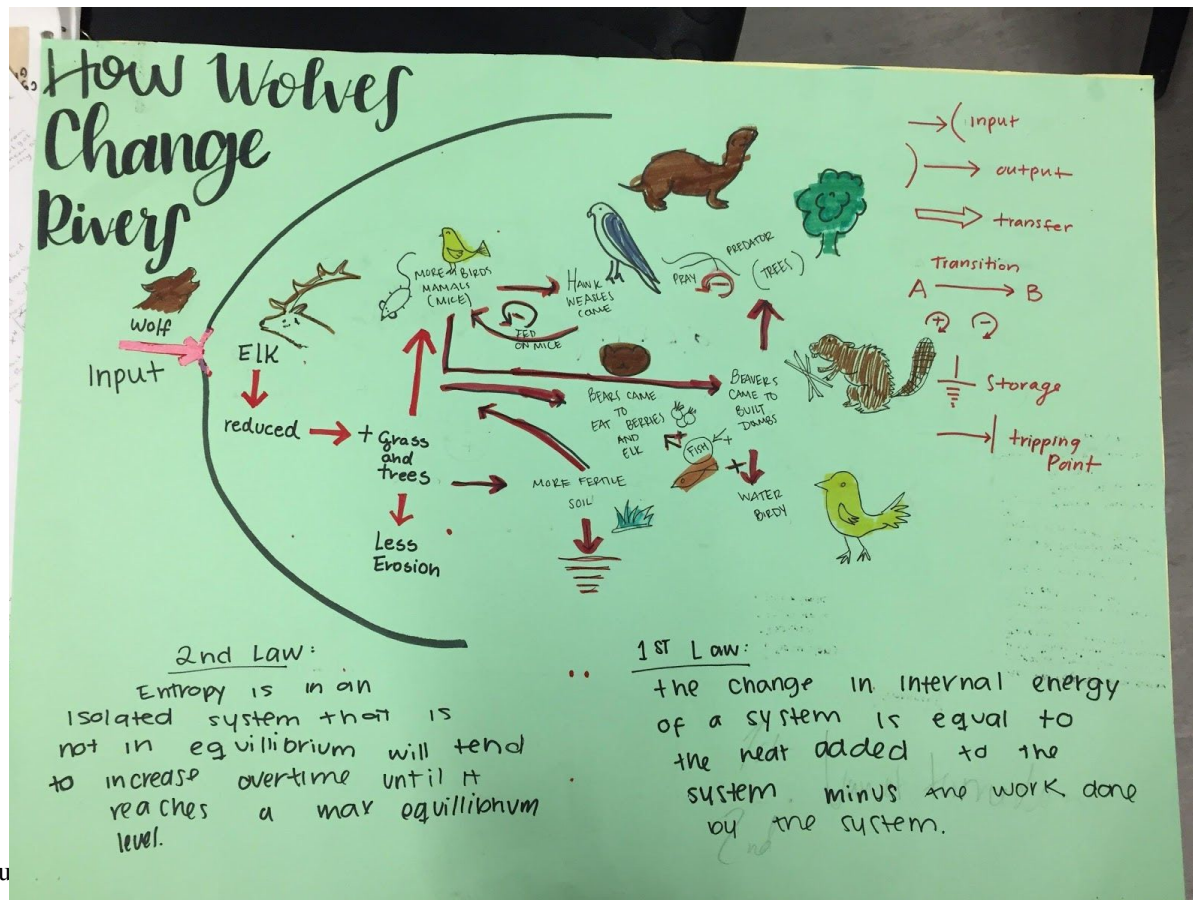 How Wolves
Change
Rivers
wolf
Input
ELK
reduced
+ Grass
and
trees
Less
Erosion
MORE BIRDS
MAMALS
(MICE)
HAWK
WEASLES
CAME
FED
ON MICE
PRAY
PREDATOR
(TREES)
BEARS CAME
TO
EAT BERRIES
AND
ELK
BEAVERS
CAME TO
BUILT
DAMBS
FISH
+
+
MORE FERTILE
SOIL
WATER
BIRDY
input
output
transfer
Transition
A → B
+ -
Storage
tripping
Point
2nd Law:
Entropy is in an
isolated system that is
not in equillibrium will tend
to increase overtime until it
reaches a max equillibrium
level.
1ST Law:
the change in internal energy
of a system is equal to
the heat added to the
system minus the work done
by the system.